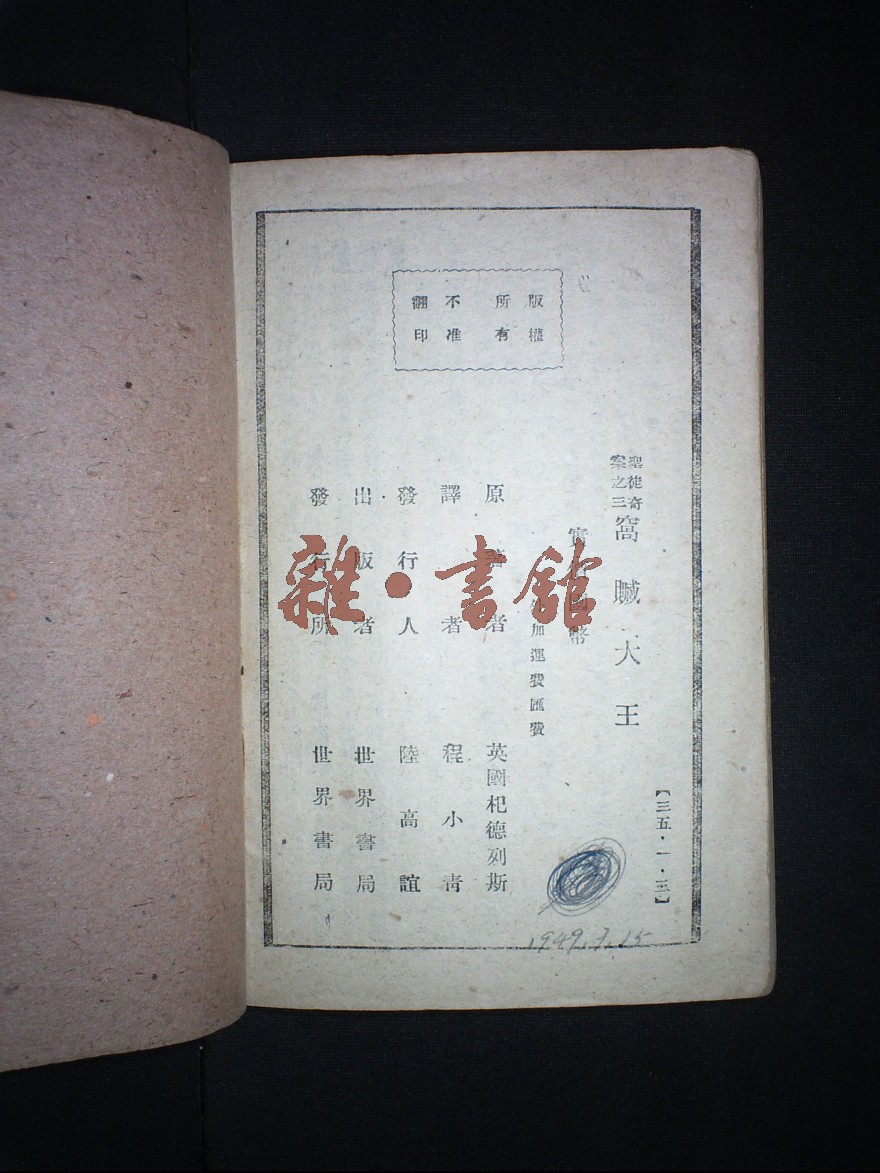 版權
所有
不准
翻印
聖徒奇
案之三
窩贓大王
實價國幣
加運費匯費
原著者 英國杞德列斯
譯者 程小青
發行人 陸高誼
出版者 世界書局
發行所 世界書局
【三五·一·三】
1949.7.15
雜·書館